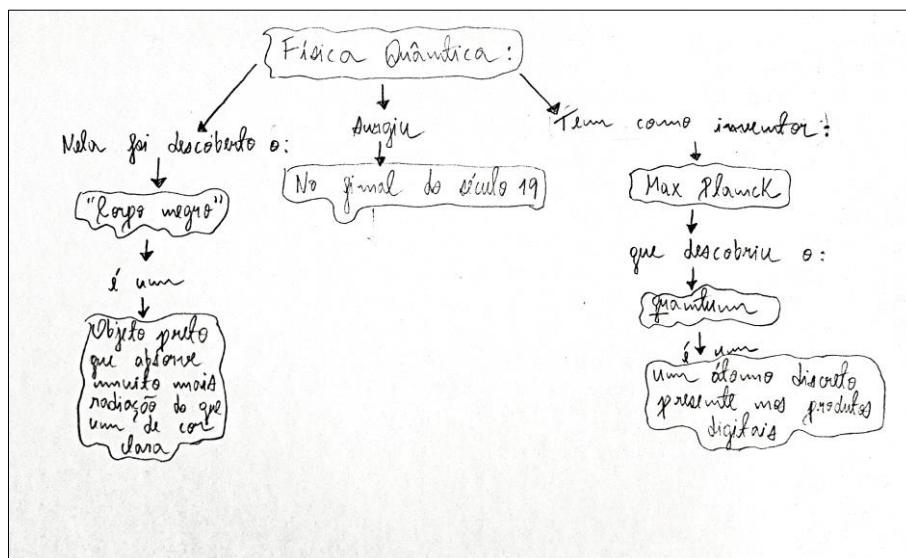 Física Quântica:
Nela foi descoberto o:
"Corpo negro"
é um
Objeto preto
que absorve
muito mais
radiação do que
um de cor
clara
Surgiu
No final do século 19
Tem como inventor:
Max Planck
que descobriu o:
quantum
é um
um átomo discreto
presente nos produtos
digitais